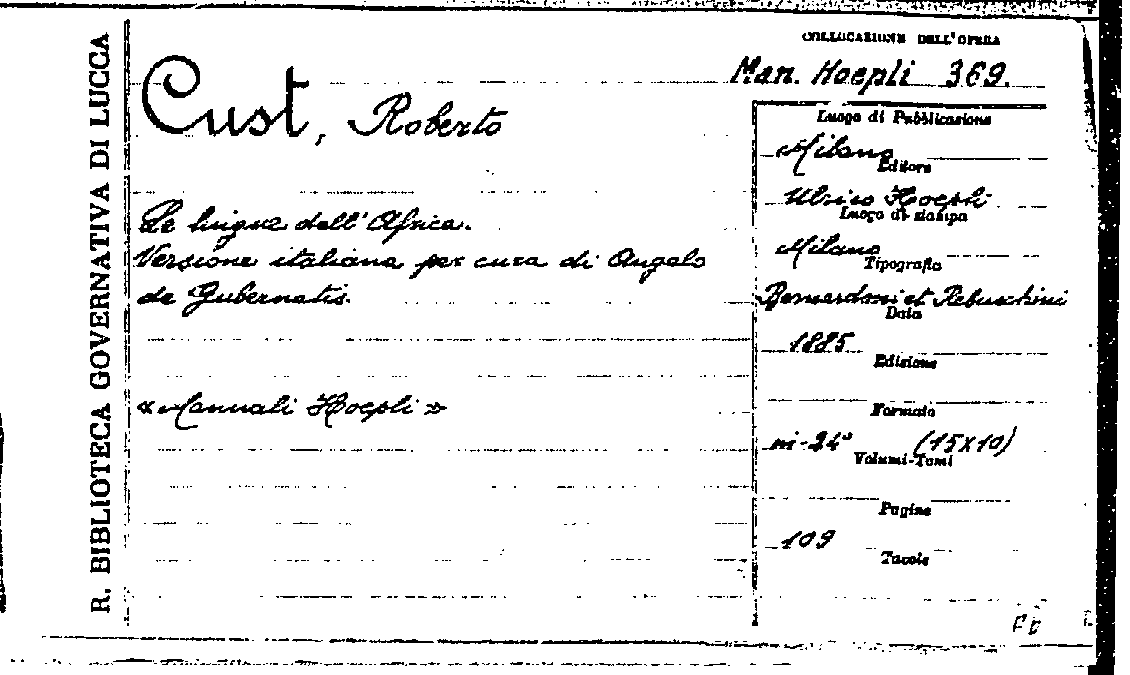 R. BIBLIOTECA GOVERNATIVA DI LUCCA
COLLOCAZIONE DELL'OPERA
Man. Hoepli 369.
Cust, Roberto
Le lingue dell'Africa.
Versione italiana per cura di Angelo
de Gubernatis.
«Manuali Hoepli»
Luogo di Pubblicazione
Milano
Editore
Ulrico Hoepli
Luogo di stampa
Milano
Tipografia
Bernardoni et Rebeschini
Data
1885
Edizione
Formato
in-24° (15x10)
Volumi-Tomi
Pagine
109
Tavole